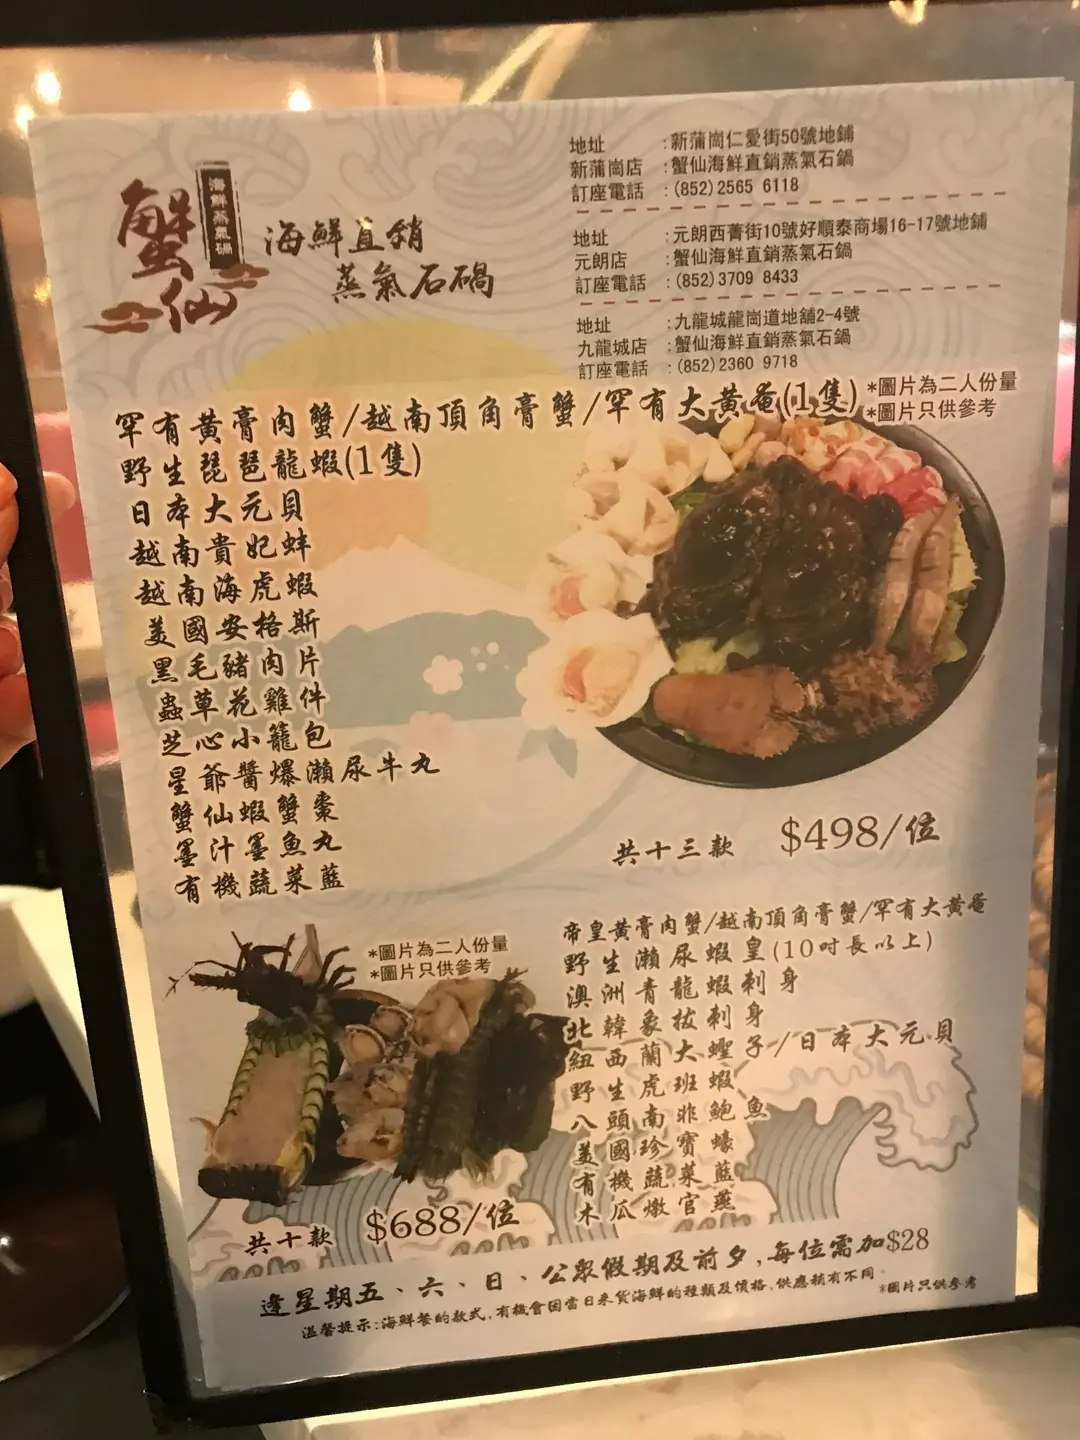 蟹仙
海鮮蒸氣石鍋
海鮮直銷
蒸氣石鍋
地址 :新蒲崗仁愛街50號地鋪
新蒲崗店 :蟹仙海鮮直銷蒸氣石鍋
訂座電話 :(852)2565 6118
地址 :元朗西菁街10號好順泰商場16-17號地鋪
元朗店 :蟹仙海鮮直銷蒸氣石鍋
訂座電話 :(852)3709 8433
地址 :九龍城龍崗道地舖2-4號
九龍城店 :蟹仙海鮮直銷蒸氣石鍋
訂座電話 :(852)2360 9718
罕有黃膏肉蟹/越南頂角膏蟹/罕有大黃奄(1隻)
*圖片為二人份量
*圖片只供參考
野生琵琶龍蝦(1隻)
日本大元貝
越南貴妃蚌
越南海虎蝦
美國安格斯
黑毛豬肉片
蟲草花雞件
芝心小籠包
星爺醬爆瀨尿牛丸
蟹仙蝦蟹棗
墨汁墨魚丸
有機蔬菜藍
共十三款 $498/位
*圖片為二人份量
*圖片只供參考
帝皇黃膏肉蟹/越南頂角膏蟹/罕有大黃奄
野生瀨尿蝦皇(10吋長以上)
澳洲青龍蝦刺身
北韓象拔刺身
紐西蘭大蟶子/日本大元貝
野生虎班蝦
八頭南非鮑魚
美國珍寶蠔
有機蔬菜藍
木瓜燉官燕
共十款 $688/位
逢星期五、六、日、公眾假期及前夕,每位需加$28
溫馨提示:海鮮餐的款式,有機會因當日來貨海鮮的種類及價格,供應稍有不同。
*圖片只供參考